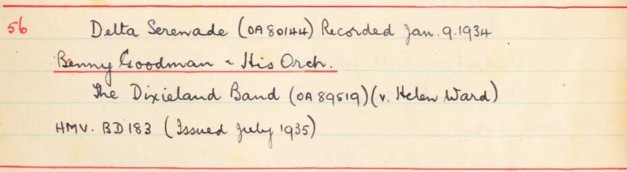 56 Delta Serenade (OA 80144) Recorded Jan. 9. 1934
Benny Goodman & His Orch.
The Dixieland Band (OA 89519) (v. Helen Ward)
HMV. BD 183 (Issued July 1935)